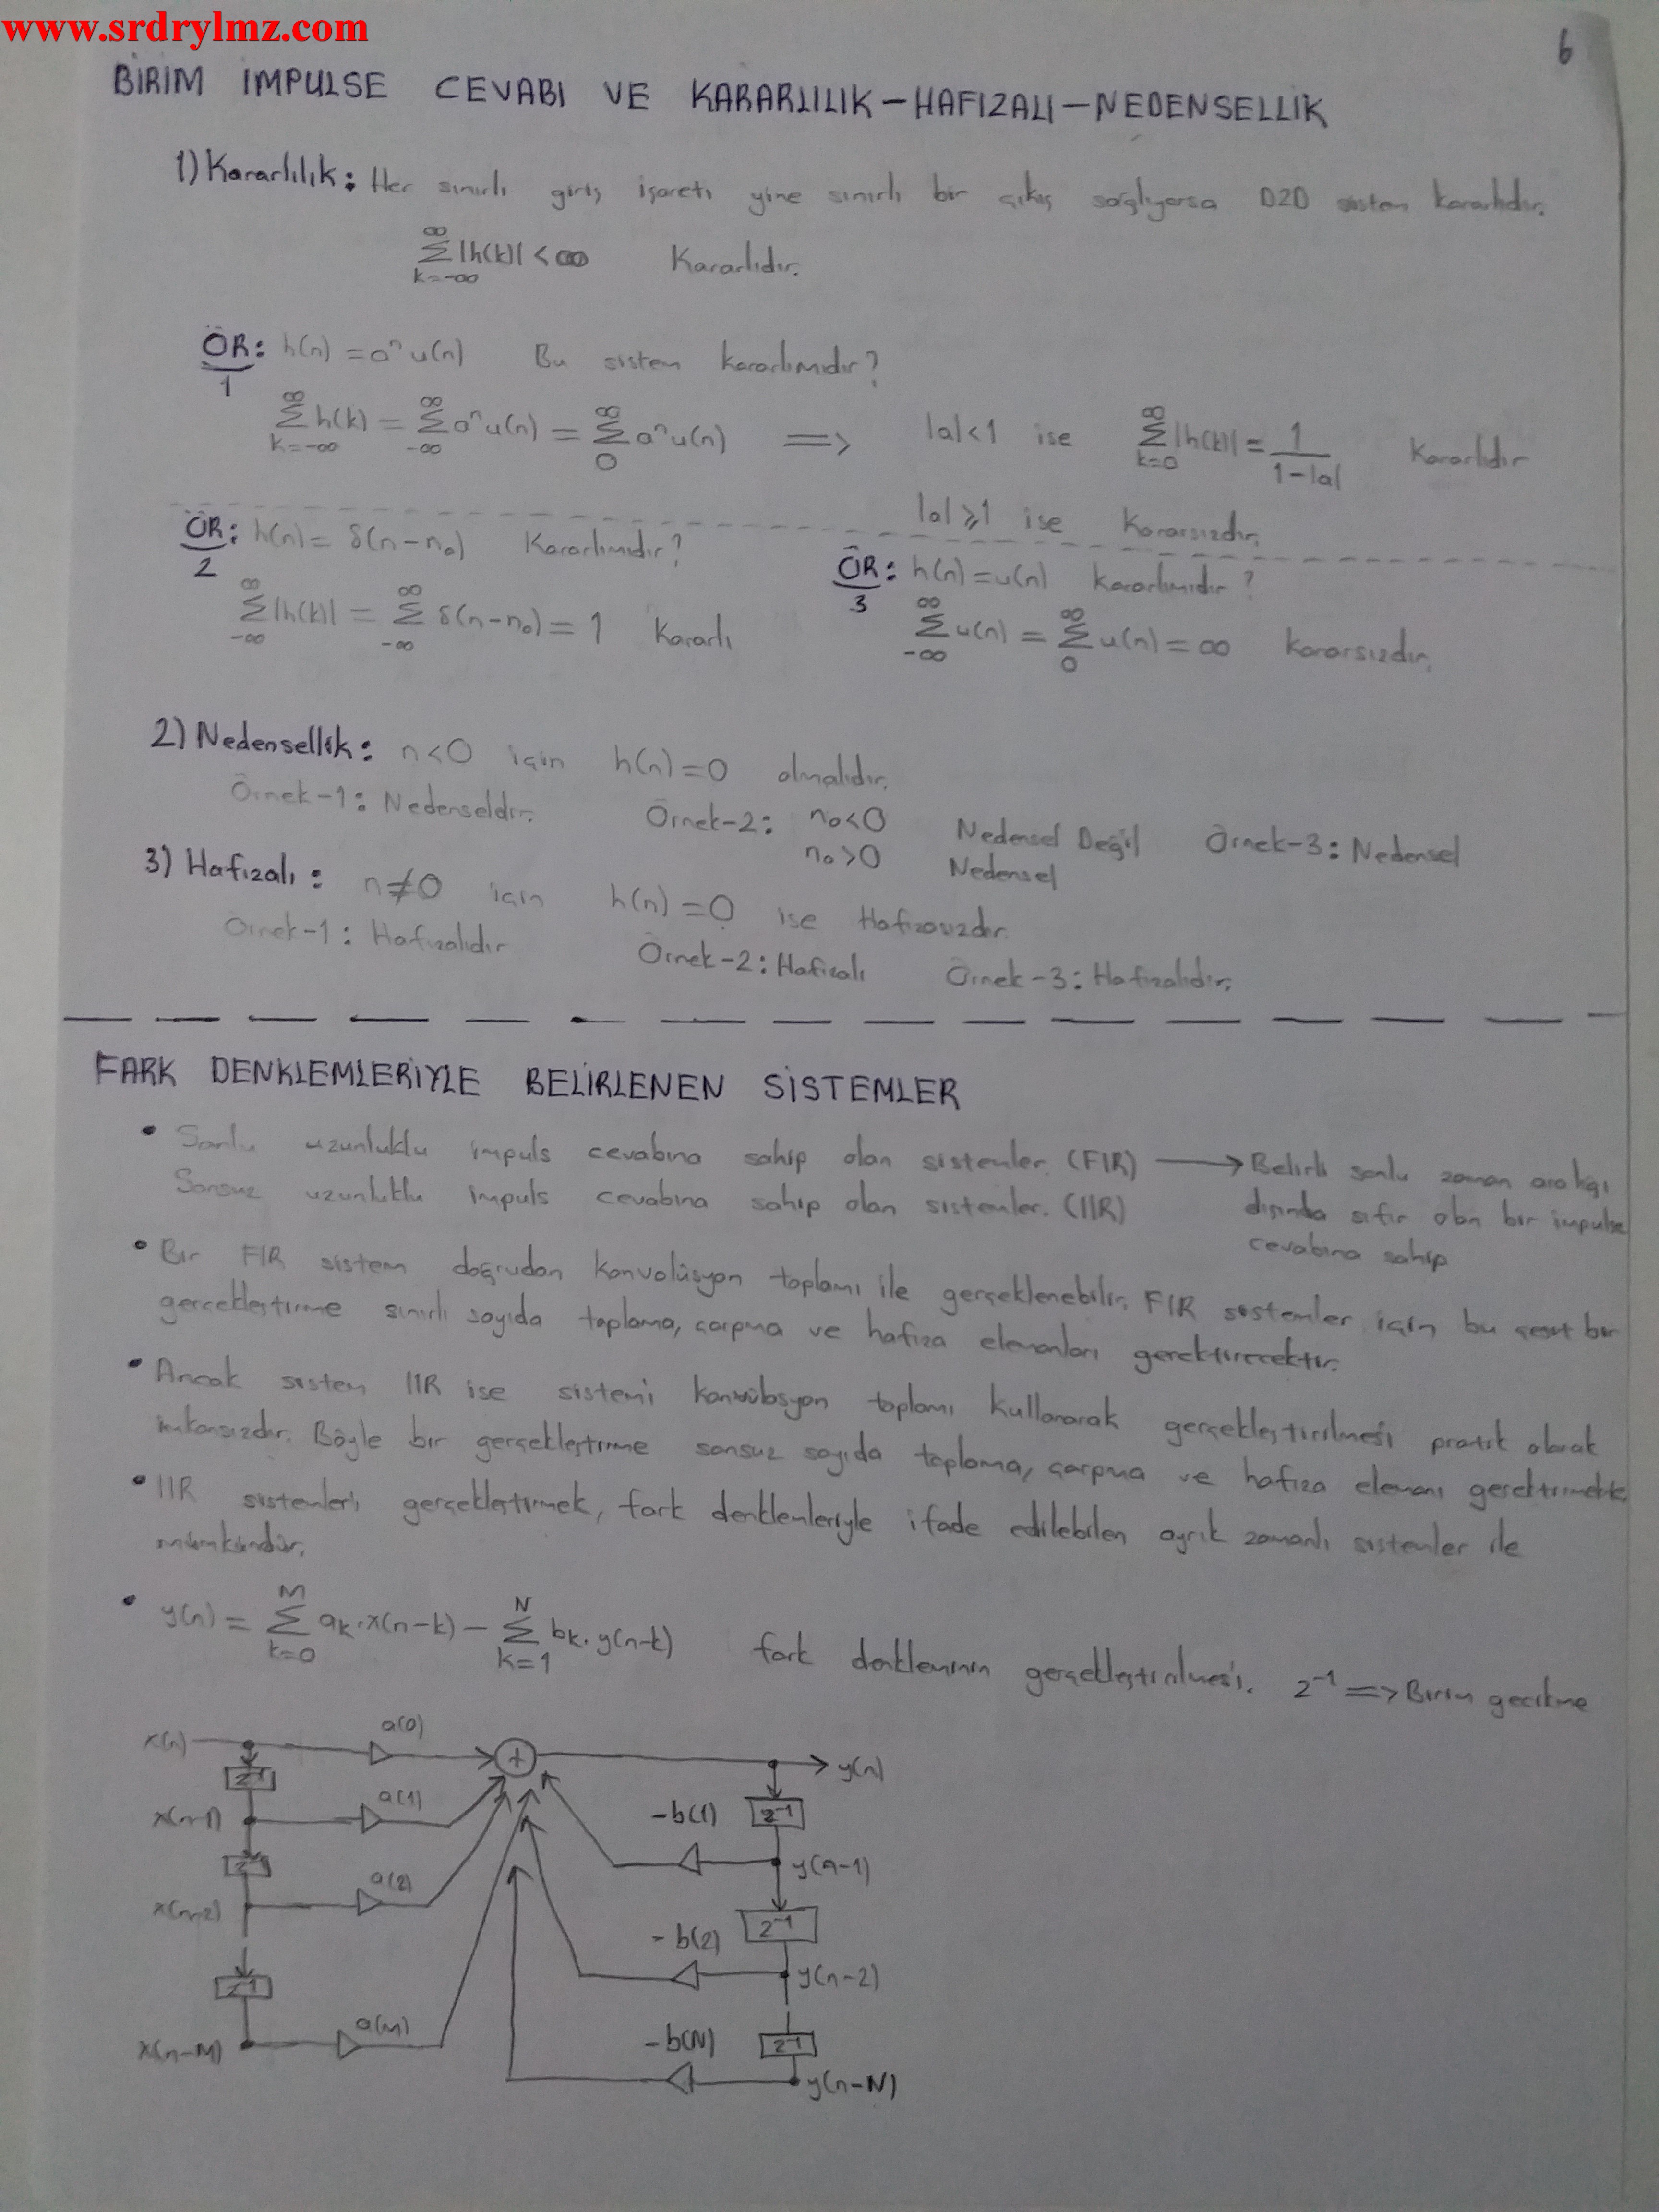 www.srdrylmz.com
6
BİRİM İMPULSE CEVABI VE KARARLILIK–HAFIZALI–NEDENSELLİK
1) Kararlılık: Her sınırlı giriş işareti yine sınırlı bir çıkış sağlıyorsa DZD sistem kararlıdır.
∞∑k=-∞ |h(k)| < ∞ Kararlıdır.
ÖR:1 h(n) = aⁿ u(n) Bu sistem kararlımıdır?
∞∑k=-∞ h(k) = ∞∑-∞ aⁿ u(n) = ∞∑0 aⁿ u(n) ⟹ |a|<1 ise ∞∑k=0 |h(k)| = 1/(1-|a|) Kararlıdır
|a|⩾1 ise Kararsızdır.
ÖR:2 h(n) = δ(n-n₀) Kararlımıdır?
∞∑-∞ |h(k)| = ∞∑-∞ δ(n-n₀) = 1 Kararlı
ÖR:3 h(n)=u(n) kararlımıdır?
∞∑-∞ u(n) = ∞∑0 u(n) = ∞ kararsızdır.
2) Nedensellik: n<0 için h(n)=0 olmalıdır.
Örnek-1: Nedenseldir. Örnek-2: n₀<0 Nedensel Değil Örnek-3: Nedensel
n₀>0 Nedensel
3) Hafızalı: n≠0 için h(n)=0 ise Hafızasızdır.
Örnek-1: Hafızalıdır Örnek-2: Hafızalı Örnek-3: Hafızalıdır.
FARK DENKLEMLERİYLE BELİRLENEN SİSTEMLER
• Sonlu uzunluklu impuls cevabına sahip olan sistemler. (FIR) → Belirli sonlu zaman aralığı
Sonsuz uzunluklu impuls cevabına sahip olan sistemler. (IIR) dışında sıfır olan bir impulse
cevabına sahip
• Bir FIR sistem doğrudan konvolüsyon toplamı ile gerçeklenebilir. FIR sistemler için bu çeşit bir
gerçekleştirme sınırlı sayıda toplama, çarpma ve hafıza elemanları gerektirecektir.
• Ancak sistem IIR ise sistemi konvülosyon toplamı kullanarak gerçekleştirilmesi pratik olarak
imkansızdır. Böyle bir gerçekleştirme sonsuz sayıda toplama, çarpma ve hafıza elemanı gerektirmekte
• IIR sistemleri gerçekleştirmek, fark denklemleriyle ifade edilebilen ayrık zamanlı sistemler ile
mümkündür.
• y(n) = M∑k=0 ak.x(n-k) - N∑k=1 bk.y(n-k) fark denkleminin gerçekleştirilmesi. z⁻¹ ⟹ Birim gecikme
x(n) a(0) + y(n)
z⁻¹ z⁻¹
x(n-1) a(1) -b(1) y(n-1)
z⁻¹ z⁻¹
x(n-2) a(2) -b(2) y(n-2)
z⁻¹ z⁻¹
x(n-M) a(M) -b(N) y(n-N)